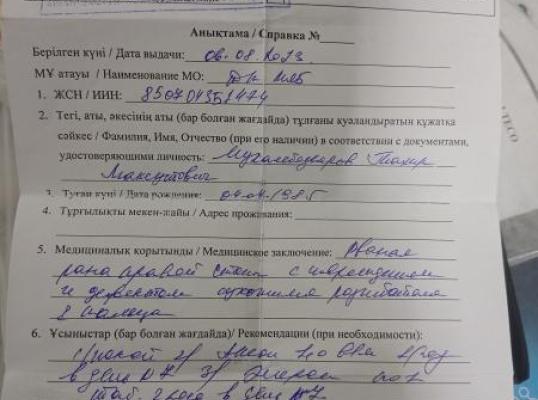 Анықтама / Справка №
Берілген күні / Дата выдачи: 06.08.2023
МҰ атауы / Наименование МО:
1. ЖСН / ИИН: 850704351474
2. Тегі, аты, әкесінің аты (бар болған жағдайда) тұлғаны куәландыратын құжатқа
сәйкес / Фамилия, Имя, Отчество (при его наличии) в соответствии с документами,
удостоверяющими личность: Тахир
Максутович
3. Туған күні / Дата рождения: 1985
4. Тұрғылықты мекен-жайы / Адрес проживания:
5. Медициналық қорытынды / Медицинское заключение: Рваная
рана правой стопы с повреждением
и дефектом сухожилия разгибателя
пальца
6. Ұсыныстар (бар болған жағдайда)/ Рекомендации (при необходимости):
1) покой 2)
в день №7 3)
таб. 2 раза в день №7